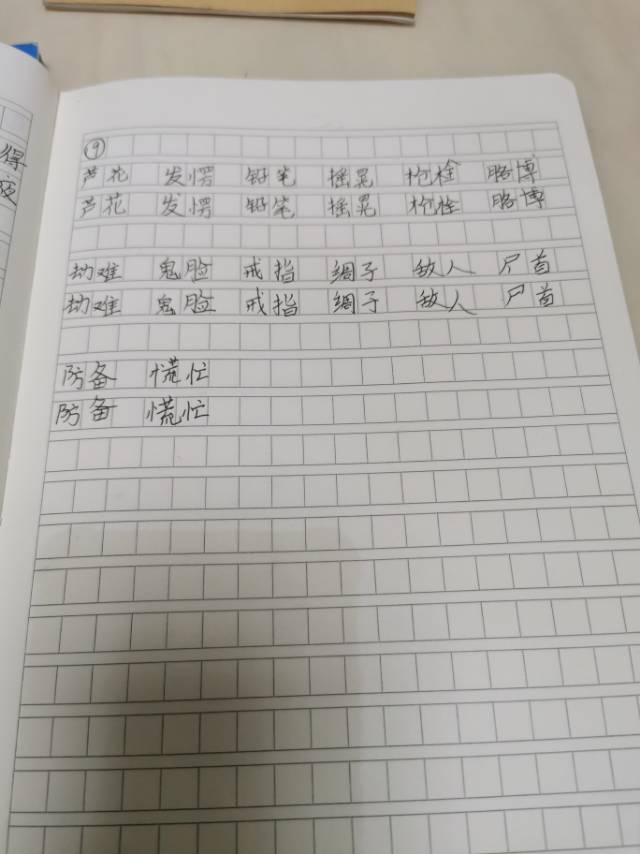 得
⑨
芦花 发愣 铅笔 摇晃 枪栓 胳博
芦花 发愣 铅笔 摇晃 枪栓 胳博
劫难 鬼脸 戒指 绸子 敌人 尸首
劫难 鬼脸 戒指 绸子 敌人 尸首
防备 慌忙
防备 慌忙